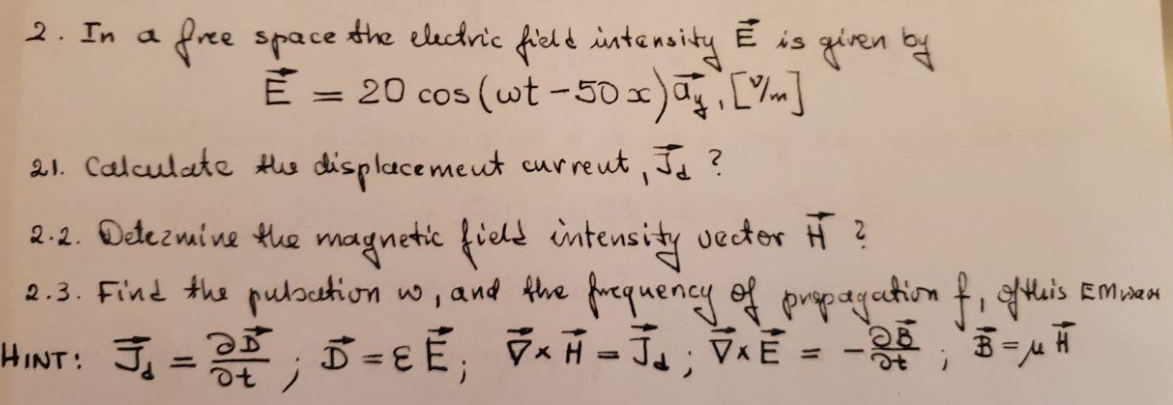 2. In a free space the electric field intensity E⃗ is given by
E⃗ = 20 cos(ωt - 50x) a⃗y, [V/m]
21. Calculate the displacement current, J⃗d ?
2.2. Determine the magnetic field intensity vector H⃗ ?
2.3. Find the pulsation ω, and the frequency of propagation f, of this EM wave
HINT: J⃗d = ∂D⃗/∂t ; D⃗ = εE⃗; ∇⃗ × H⃗ = J⃗d ; ∇⃗ × E⃗ = - ∂B⃗/∂t ; B⃗ = μH⃗